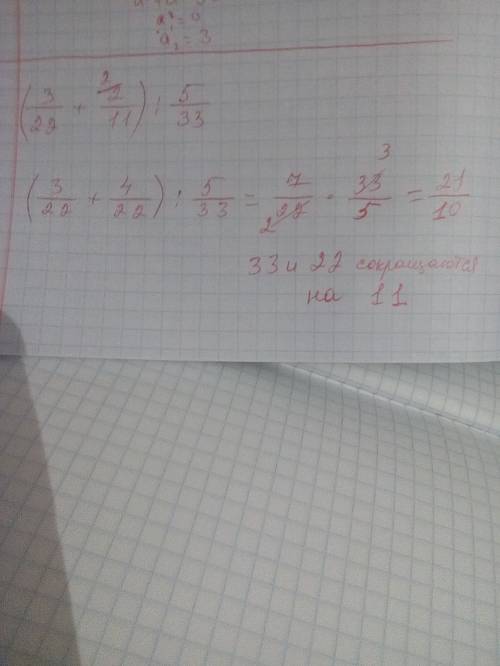 a₂ = 3
(3/22 + 2/11) : 5/33
2
(3/22 + 4/22) : 5/33 = 7/22 · 33/5 = 21/10
3
2
33 и 22 сокращаются
на 11